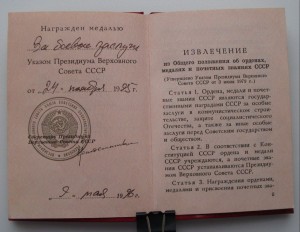 Награжден медалью
За боевые заслуги
Указом Президиума Верховного
Совета СССР
от „24“ ноября 1995 г.
9 мая
ИЗВЛЕЧЕНИЕ
из Общего положения об орденах,
медалях и почетных званиях СССР
(Утверждено Указом Президиума Верховного
Совета СССР от 3 июля 1979 г.)
Статья 1. Ордена, медали и поче-
тные звания СССР являются государ-
ственными наградами за особые за-
слуги в коммунистическом строитель-
стве, защите социалистического
Отечества, а также за иные особые
заслуги перед Советским государством
и обществом.
Статья 2. В соответствии с Конс-
титуцией СССР ордена и медали
СССР учреждаются, а почетные зва-
ния СССР устанавливаются Президиу-
мом Верховного Совета СССР.
Статья 3. Награждение орденами,
медалями и присвоение почетных зва-